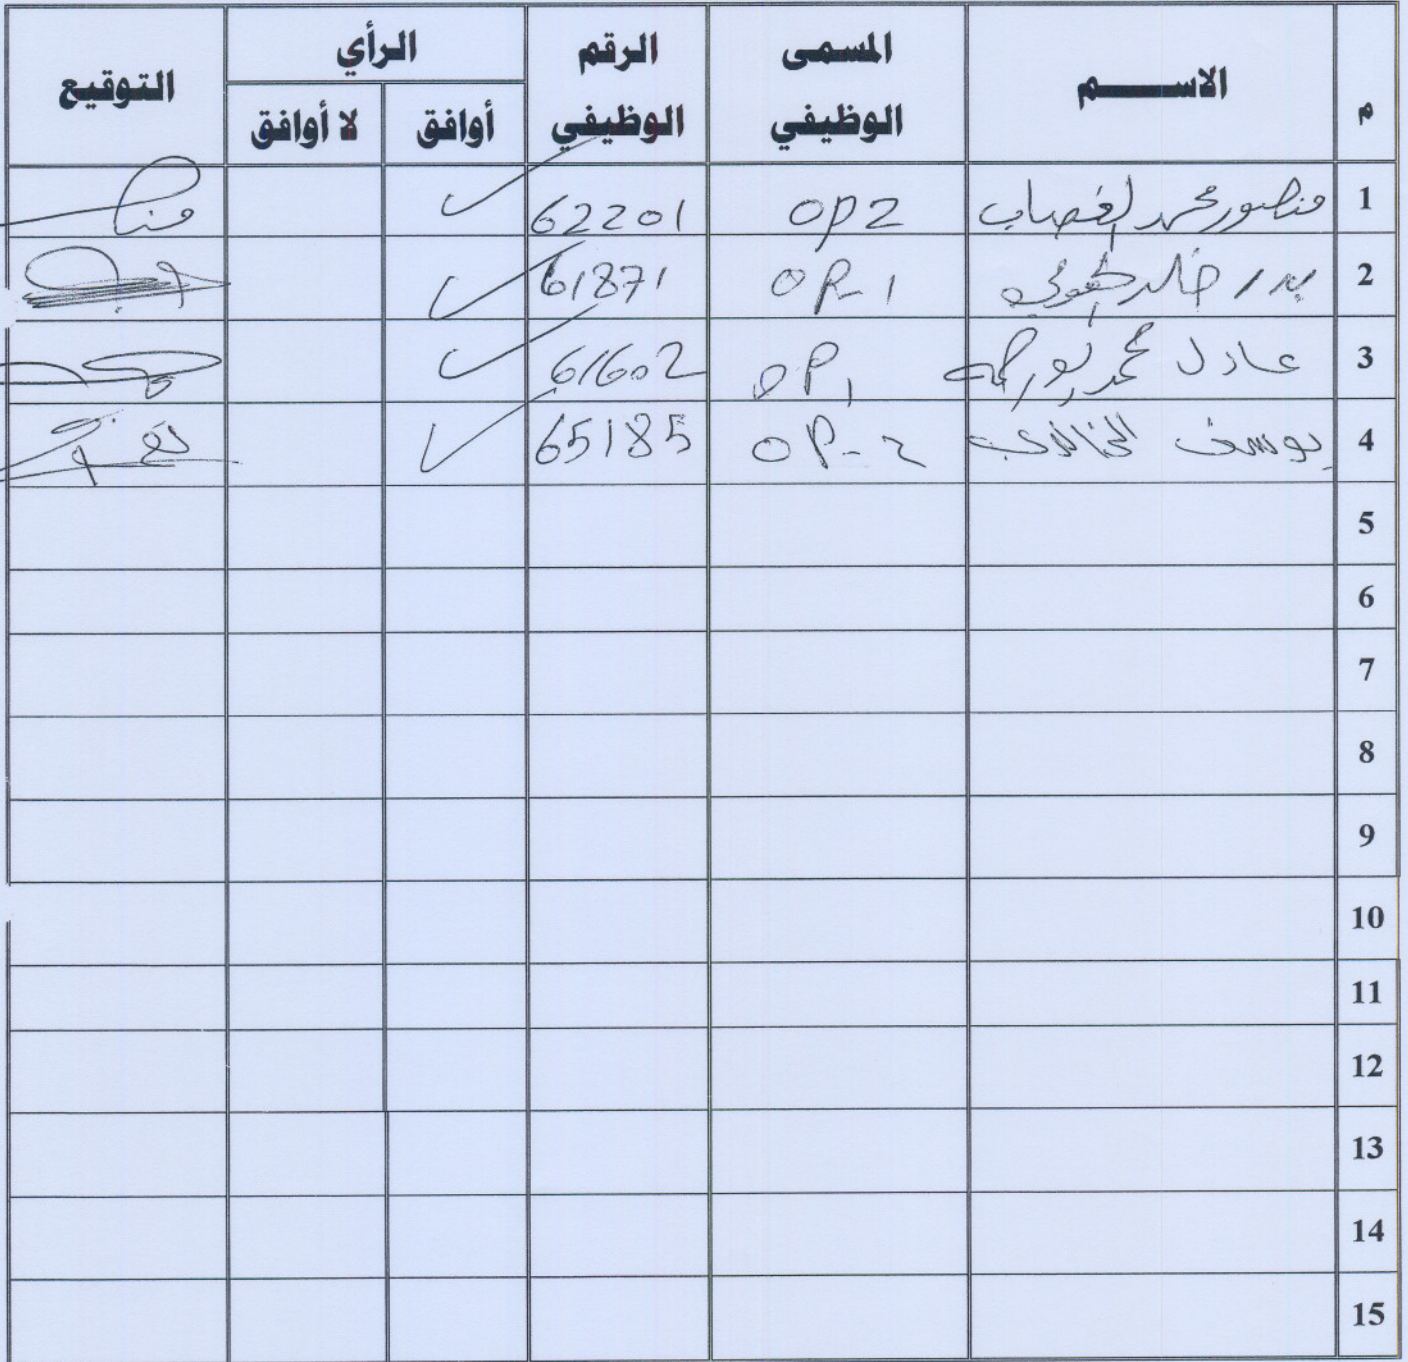 م الاســـــم المسمى الوظيفي الرقم الوظيفي الرأي التوقيع
أوافق لا أوافق
1 منصور محمد القصاب OP2 62201 ✓
2 بدر خالد OP-1 61871 ✓
3 عادل محمد OP1 61602 ✓
4 يوسف الخالدي OP-2 65185 ✓
5
6
7
8
9
10
11
12
13
14
15